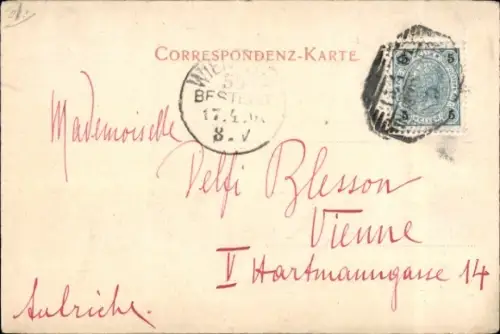 CORRESPONDENZ-KARTE
5 5
5 5
WIEN
BESTELLT
17.4.0
8.V
Mademoiselle
Delfi Blesson
Vienne
V Hartmanngasse 14
Autriche.